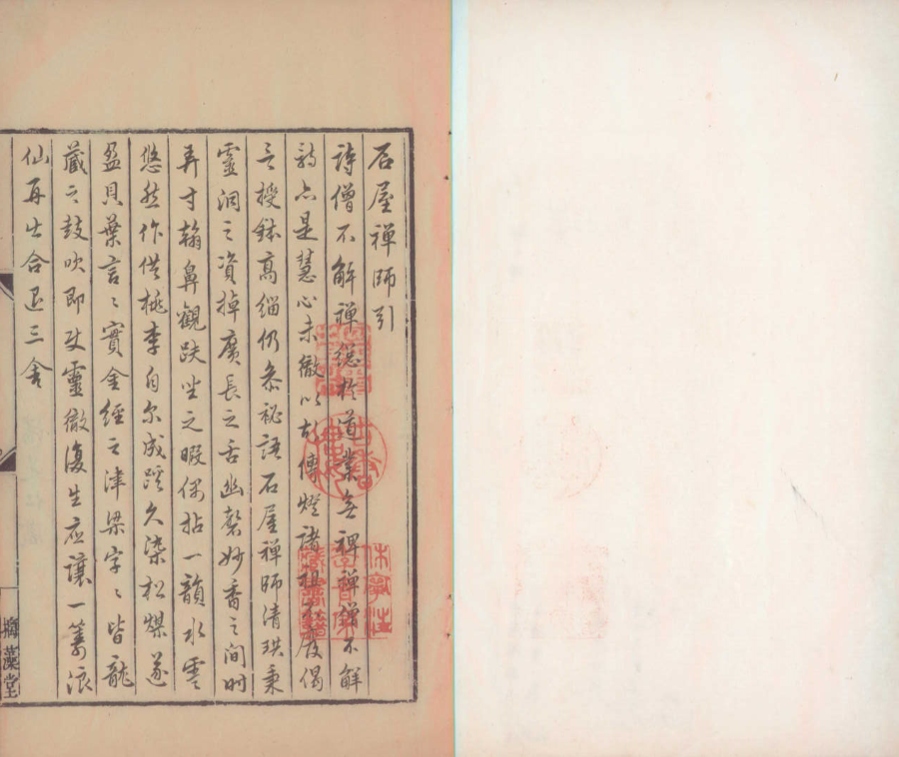 石屋禅師引
詩僧不解禅總於道業無裨禅僧不解
詩亦是慧心未徹以故傳燈諸祖不廢偈
言授鉢高緇仍参秘語石屋禅師清珙秉
靈洞之資掉廣長之舌幽磬妙香之间时
弄寸翰鼻觀趺坐之暇偶拈一韻水雲
悠然作供桃李自尔成蹊久染松煤遂
盈貝葉言〻實金經之津梁字〻皆龍
藏之鼓吹即使靈徹復生應讓一籌浪
仙再出合退三舍
摛藻堂